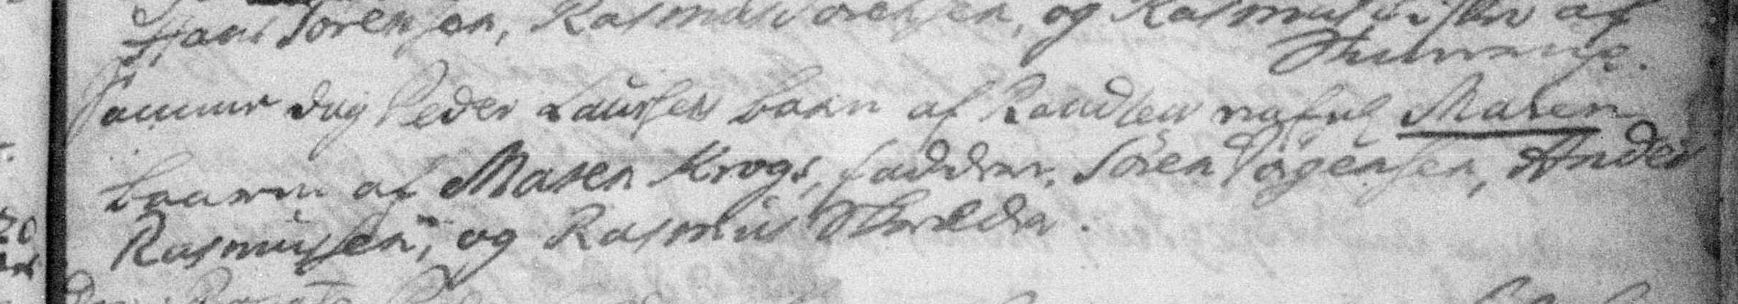 Hans Sørensen, Rasmus Sørensen, og Rasmus af
Samme dag Peder Laursens barn af Randlev nafnl Maren
baaren af Maren Krogs, faddere. Søren Jørgensen, Anders
Rasmussen, og Rasmus